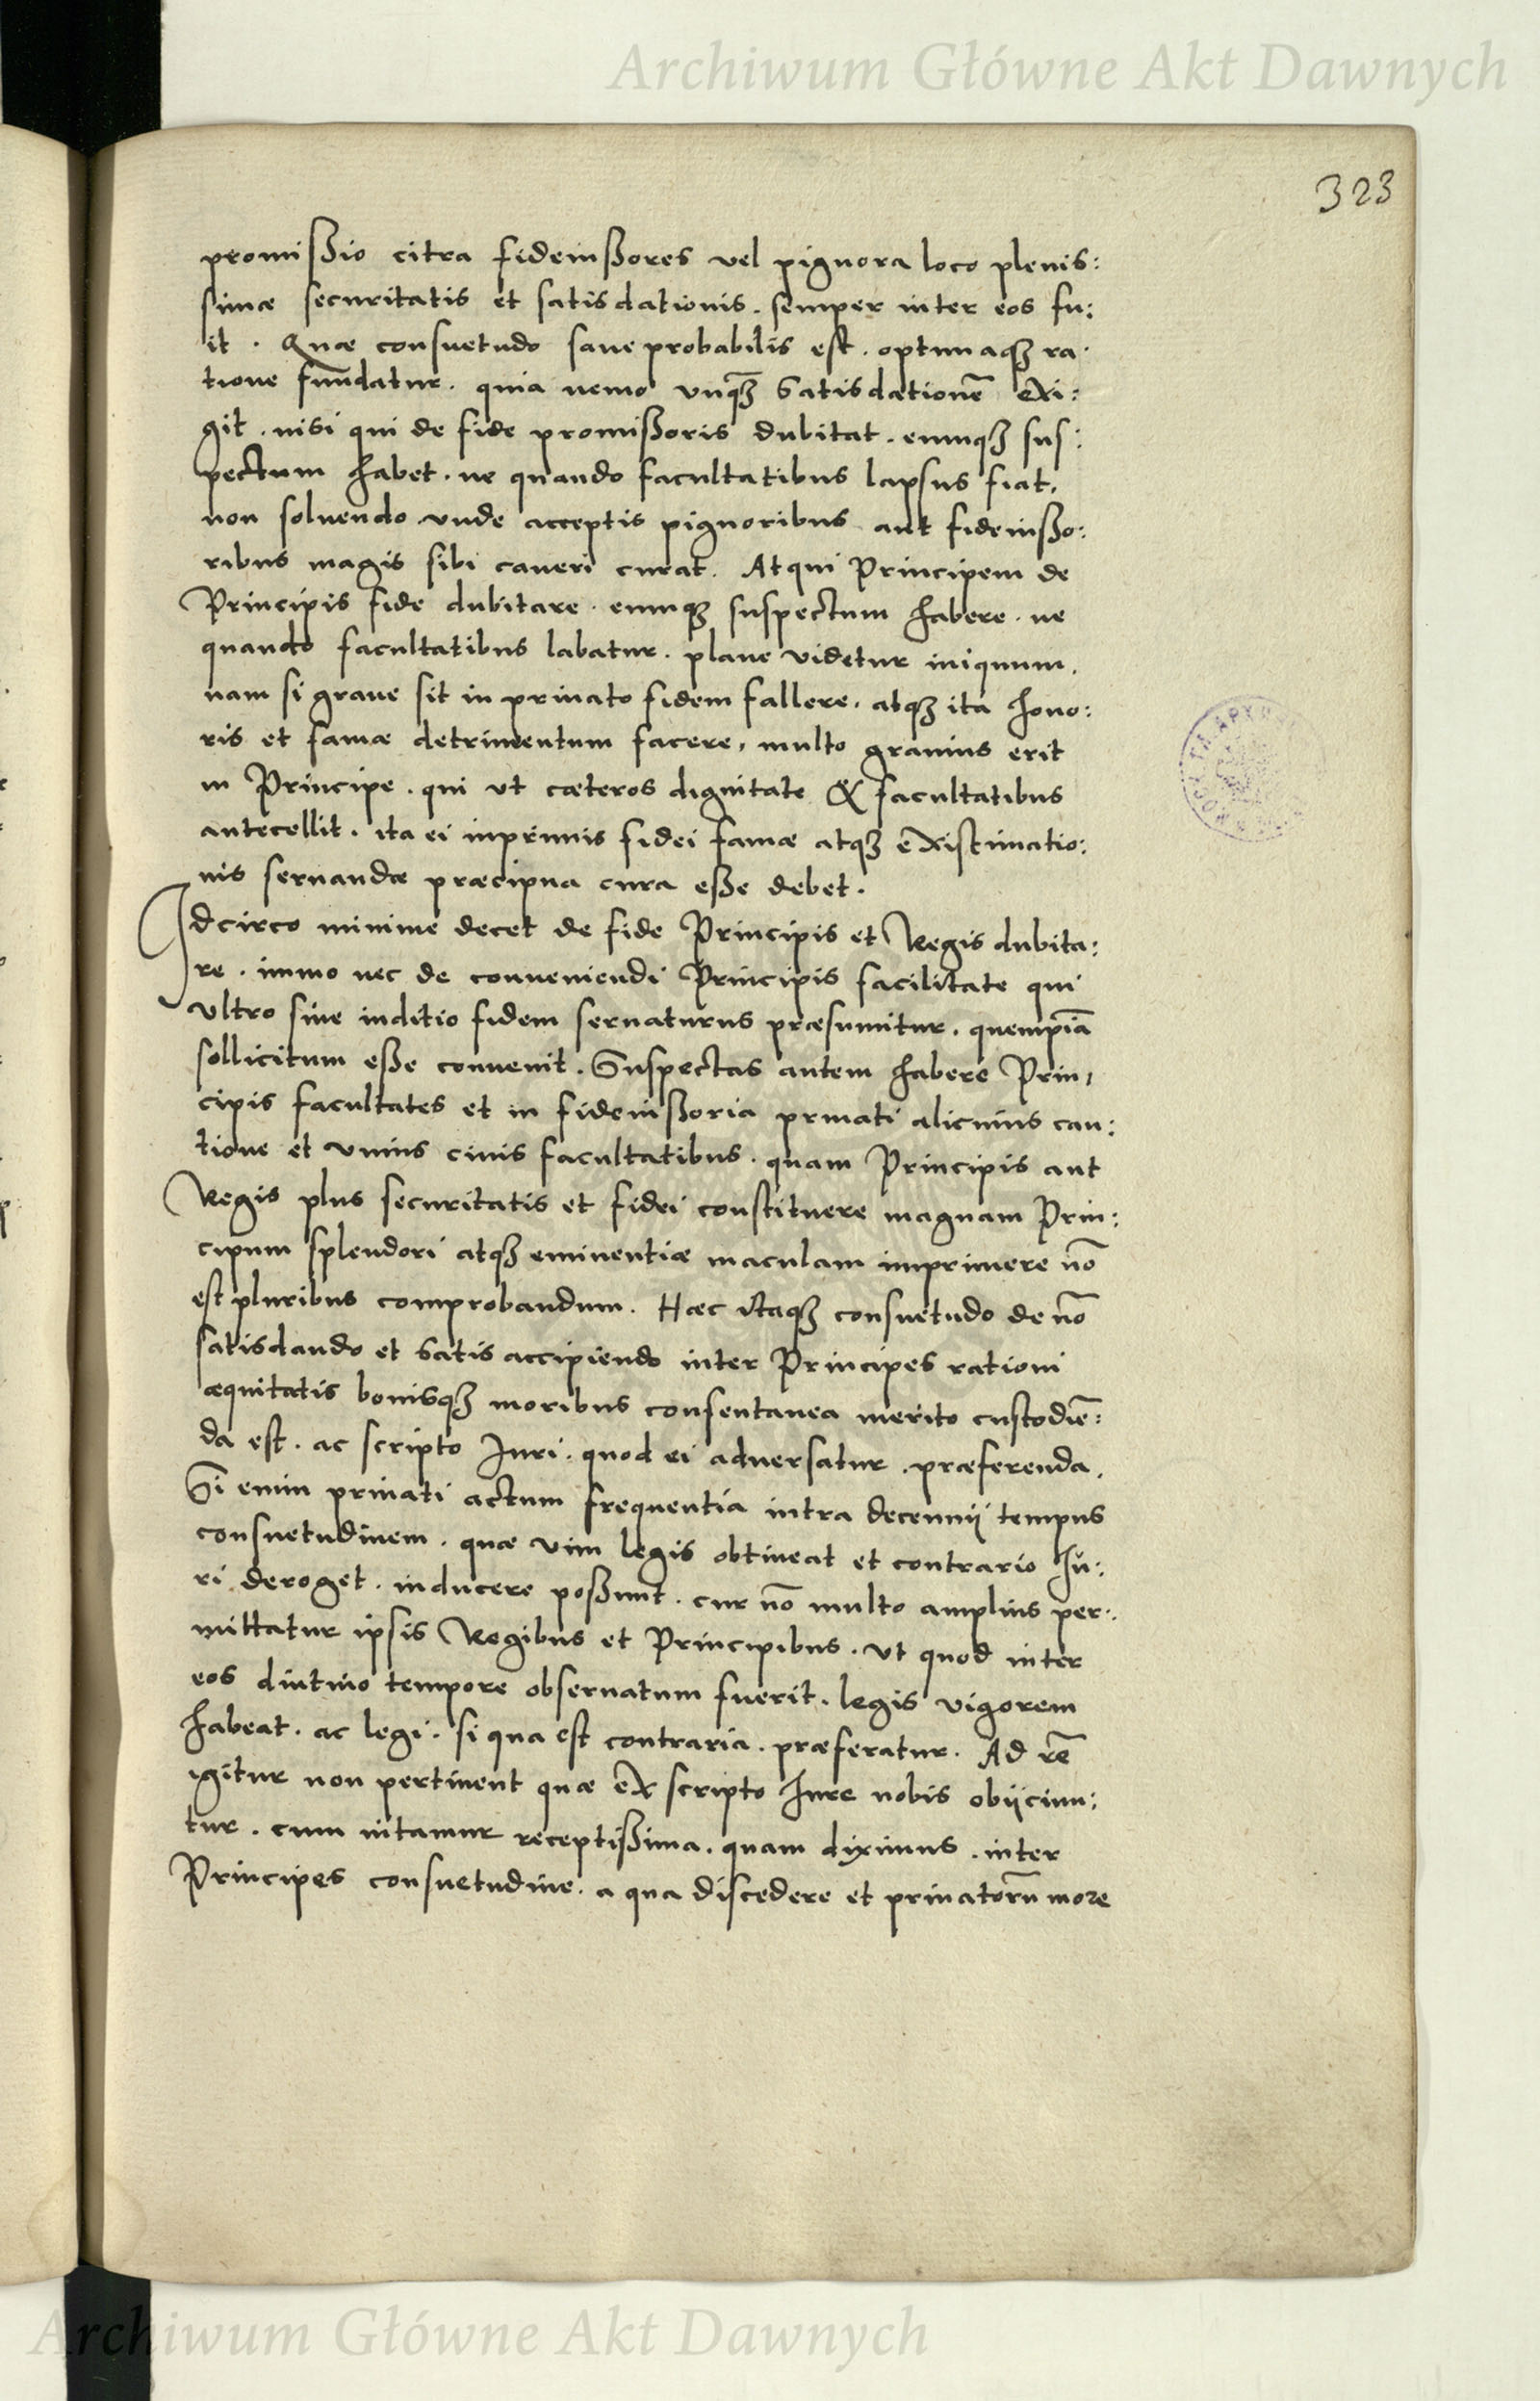 Archiwum Główne Akt Dawnych
323
promißio citra fideiußores vel pignora loco plenis:
simæ securitatis et satisdationis. semper inter eos fu:
it. Quæ consuetudo sane probabilis est. optimaqȝ ra.
tione fundatur. quia nemo vnqȝ̄ Satisdationē exi:
git. nisi qui de fide promißoris dubitat. eumqȝ sus:
pectum habet. ne quando facultatibus lapsus fiat,
non soluendo vnde acceptis pignoribus aut fideiußo:
ribus magis sibi caueri curat. Atqui Principem de
Principis fide dubitare. eumqȝ suspectum habere. ne
quando facultatibus labatur. plane videtur iniquum.
nam si graue sit in priuato fidem fallere, atqȝ ita hono:
ris et famæ detrimentum facere, multo grauius erit
in Principe. qui vt cæteros dignitate & facultatibus
antecellit. ita ei inprimis fidei famæ atqȝ existimatio:
nis seruandæ præcipua cura eße debet.
Idcirco minime decet de fide Principis et Regis dubita:
re. immo nec de conueniendi Principis facilitate qui
vltro siue inditio fidem seruaturus præsumitur. quempiā
sollicitum eße conuenit. Suspectas autem habere Prin,
cipis facultates et in fideiußoria priuati alicuius cau:
tione et vnius ciuis facultatibus. quam Principis aut
Regis plus securitatis et fidei constituere magnam Prin:
cipum splendori atqȝ eminentiæ maculam imprimere nō
est pluribus comprobandum. Hæc itaqȝ consuetudo de nō
satisdando et Satis accipiendo inter Principes rationi
æquitatis bonisqȝ moribus consentanea merito custodiē:
da est. ac scripto Iuri. quod ei aduersatur. præferenda.
Si enim priuati actum frequentia intra decennij tempus
consuetudinem. quæ vim legis obtineat et contrario Iu:
ri deroget. inducere poßunt. cur nō multo amplius per:
mittatur ipsis Regibus et Principibus. vt quod inter
eos diutino tempore obseruatum fuerit. legis vigorem
habeat. ac legi. si qua est contraria. præferatur. Ad rē
igitur non pertinent quæ ex scripto Iure nobis obijciun:
tur. cum nitamur receptißima. quam diximus. inter
Principes consuetudine. a qua discedere et priuatorū more
Archiwum Główne Akt Dawnych